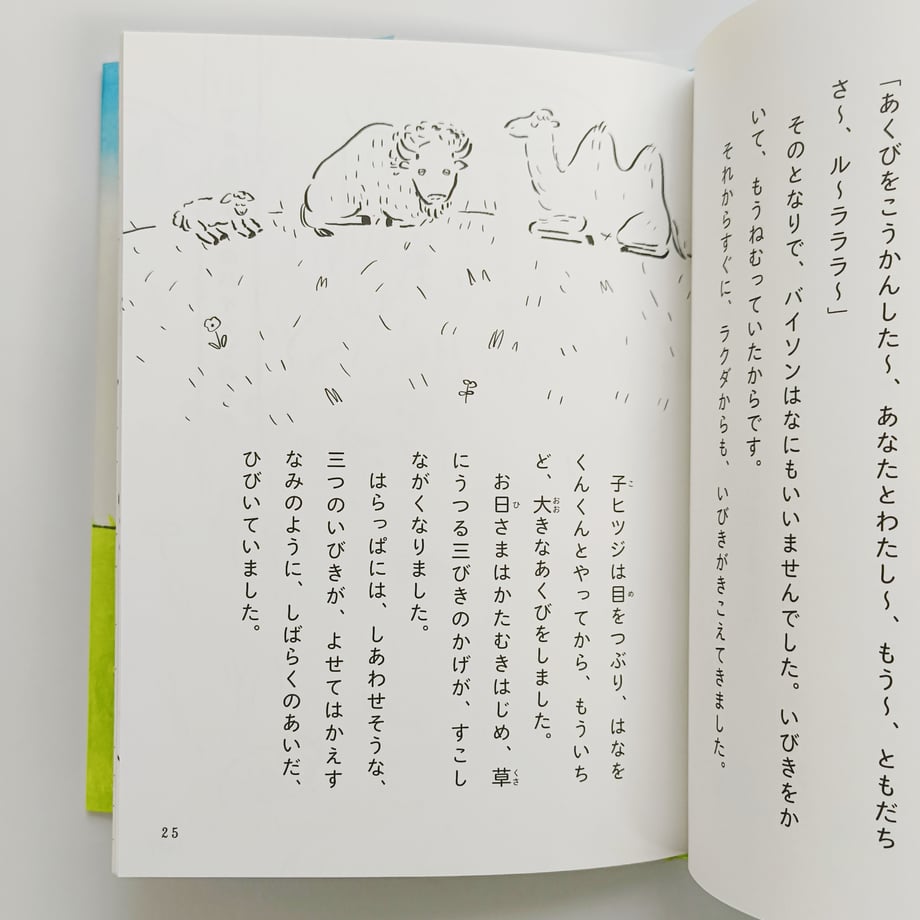 「あくびをこうかんした〜、あなたとわたし〜、もう〜、ともだち
さ〜、ル〜ラララ〜」
そのとなりで、バイソンはなにもいいませんでした。いびきをか
いて、もうねむっていたからです。
それからすぐに、ラクダからも、いびきがきこえてきました。
子ヒツジは目をつぶり、はなを
くんくんとやってから、もういち
ど、大きなあくびをしました。
お日さまはかたむきはじめ、草
にうつる三びきのかげが、すこし
ながくなりました。
はらっぱには、しあわせそうな、
三つのいびきが、よせてはかえす
なみのように、しばらくのあいだ、
ひびいていました。
25